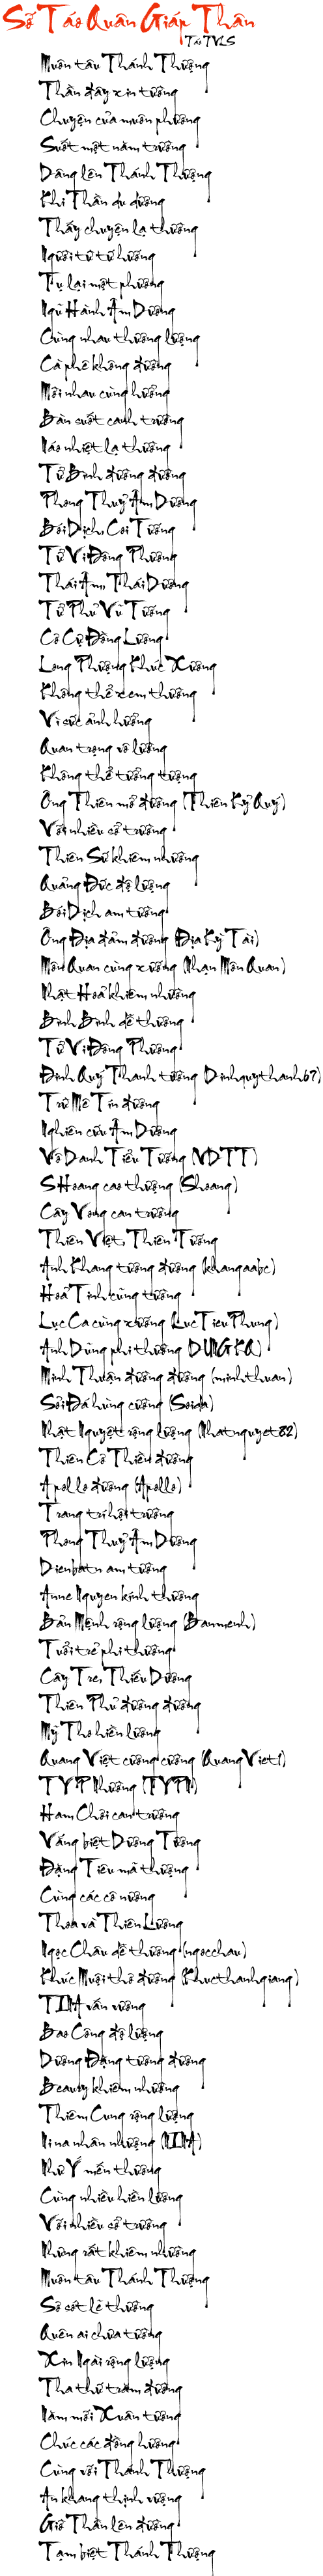 Sớ Táo Quân Giáp Thân
Táo TVLS
Muôn tâu Thánh Thượng
Thần đây xin tường
Chuyện của muôn phương
Suốt một năm trường
Dâng lên Thánh Thượng
Khi Thần du dương
Thấy chuyện lạ thường
Người tứ tứ hướng
Tụ lại một phương
Ngũ Hành Âm Dương
Cùng nhau thương lượng
Cà phê không đường
Mời nhau cùng hưởng
Bàn suốt canh trường
Náo nhiệt lạ thường
Tử Bình đường đường
Phong Thuỷ Âm Dương
Bói Dịch, Coi Tướng
Tử Vi Đông Phương
Thái Âm, Thái Dương
Tử Phủ Vũ Tướng
Cô Cự Đồng Lương
Long Phượng Khúc Xương
Không thể xem thường
Vì sức ảnh hưởng
Quan trọng vô lường
Không thể tưởng tượng
Ông Thiên mở đường (Thiên Kỷ Quý)
Với nhiều sở trường
Thiên Sứ khiêm nhường
Quảng Đức độ lượng
Bói Dịch am tường
Ông Địa đảm đương (Địa Kỳ Tài)
Môn Quan cùng xướng (Nhạn Môn Quan)
Nhật Hoả khiêm nhường
Bình Bình dễ thương
Tử Vi Đông Phương
Đinh Quý Thanh tường (Dinhquythanh67)
Trừ Mê Tín đường
Nghiên cứu Âm Dương
Vô Danh Tiểu Tướng (VDTT)
SHoang cao thượng (Shoang)
Cây Vong can trường
Thiên Việt, Thiên Tướng
Anh Khang tương đương (khangaabc)
Hoả Tinh cùng tường
Lục Ca cùng xướng (LucTieuPhung)
Anh Dũng phi thường (DUNGKQ)
Minh Thuận đường đường (minhthuan)
Sỏi Đá hùng cường (Soida)
Nhật Nguyệt rộng lượng (Nhatnguyet82)
Thiên Cơ Thiên đường
Apollo đương (Apollo)
Trang trí hội trường
Phong Thuỷ Âm Dương
Dienbatn am tường
Anne Nguyen kính thương
Bản Mệnh rộng lượng (Banmenh)
Tuổi trẻ phi thường
Cây Tre, Thiếu Dương
Thiên Phủ đường đường
Mỹ Tho hiền lương
Quang Việt cương cường (QuangViet1)
TYTP Nhường (TYTM)
Ham Chơi can trường
Vắng biệt Dương Tường
Đặng Tiêu mã thượng
Cùng các cô nương
Thoa và Thiên Lương
Ngọc Châu dễ thương (ngocchau)
Khúc Muội thơ đường (Khucthanhgiang)
TINA vấn vương
Bao Công độ lượng
Dương Đặng tương đương
Beauty khiêm nhường
Thiêm Cung rộng lượng
Nina nhân nhượng (NINA)
Như Ý mến thương
Cùng nhiều hiền lương
Với nhiều sở trường
Nhưng rất khiêm nhường
Muôn tâu Thánh Thượng
Sơ sót lẽ thường
Quên ai chưa tường
Xin Ngài rộng lượng
Tha thứ trăm đường
Năm mới Xuân tường
Chúc các đồng hương
Cùng với Thánh Thượng
An khang thịnh vượng
Giờ Thần lên đường
Tạm biệt Thánh Thượng